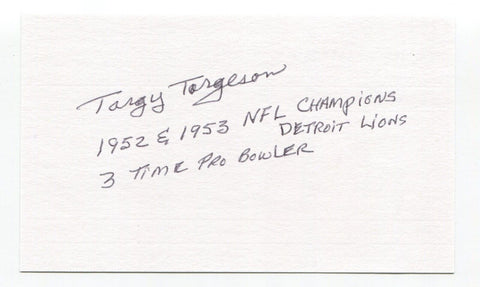 Torgy Torgeson
1952 & 1953 NFL CHAMPIONS
DETROIT LIONS
3 TIME PRO BOWLER